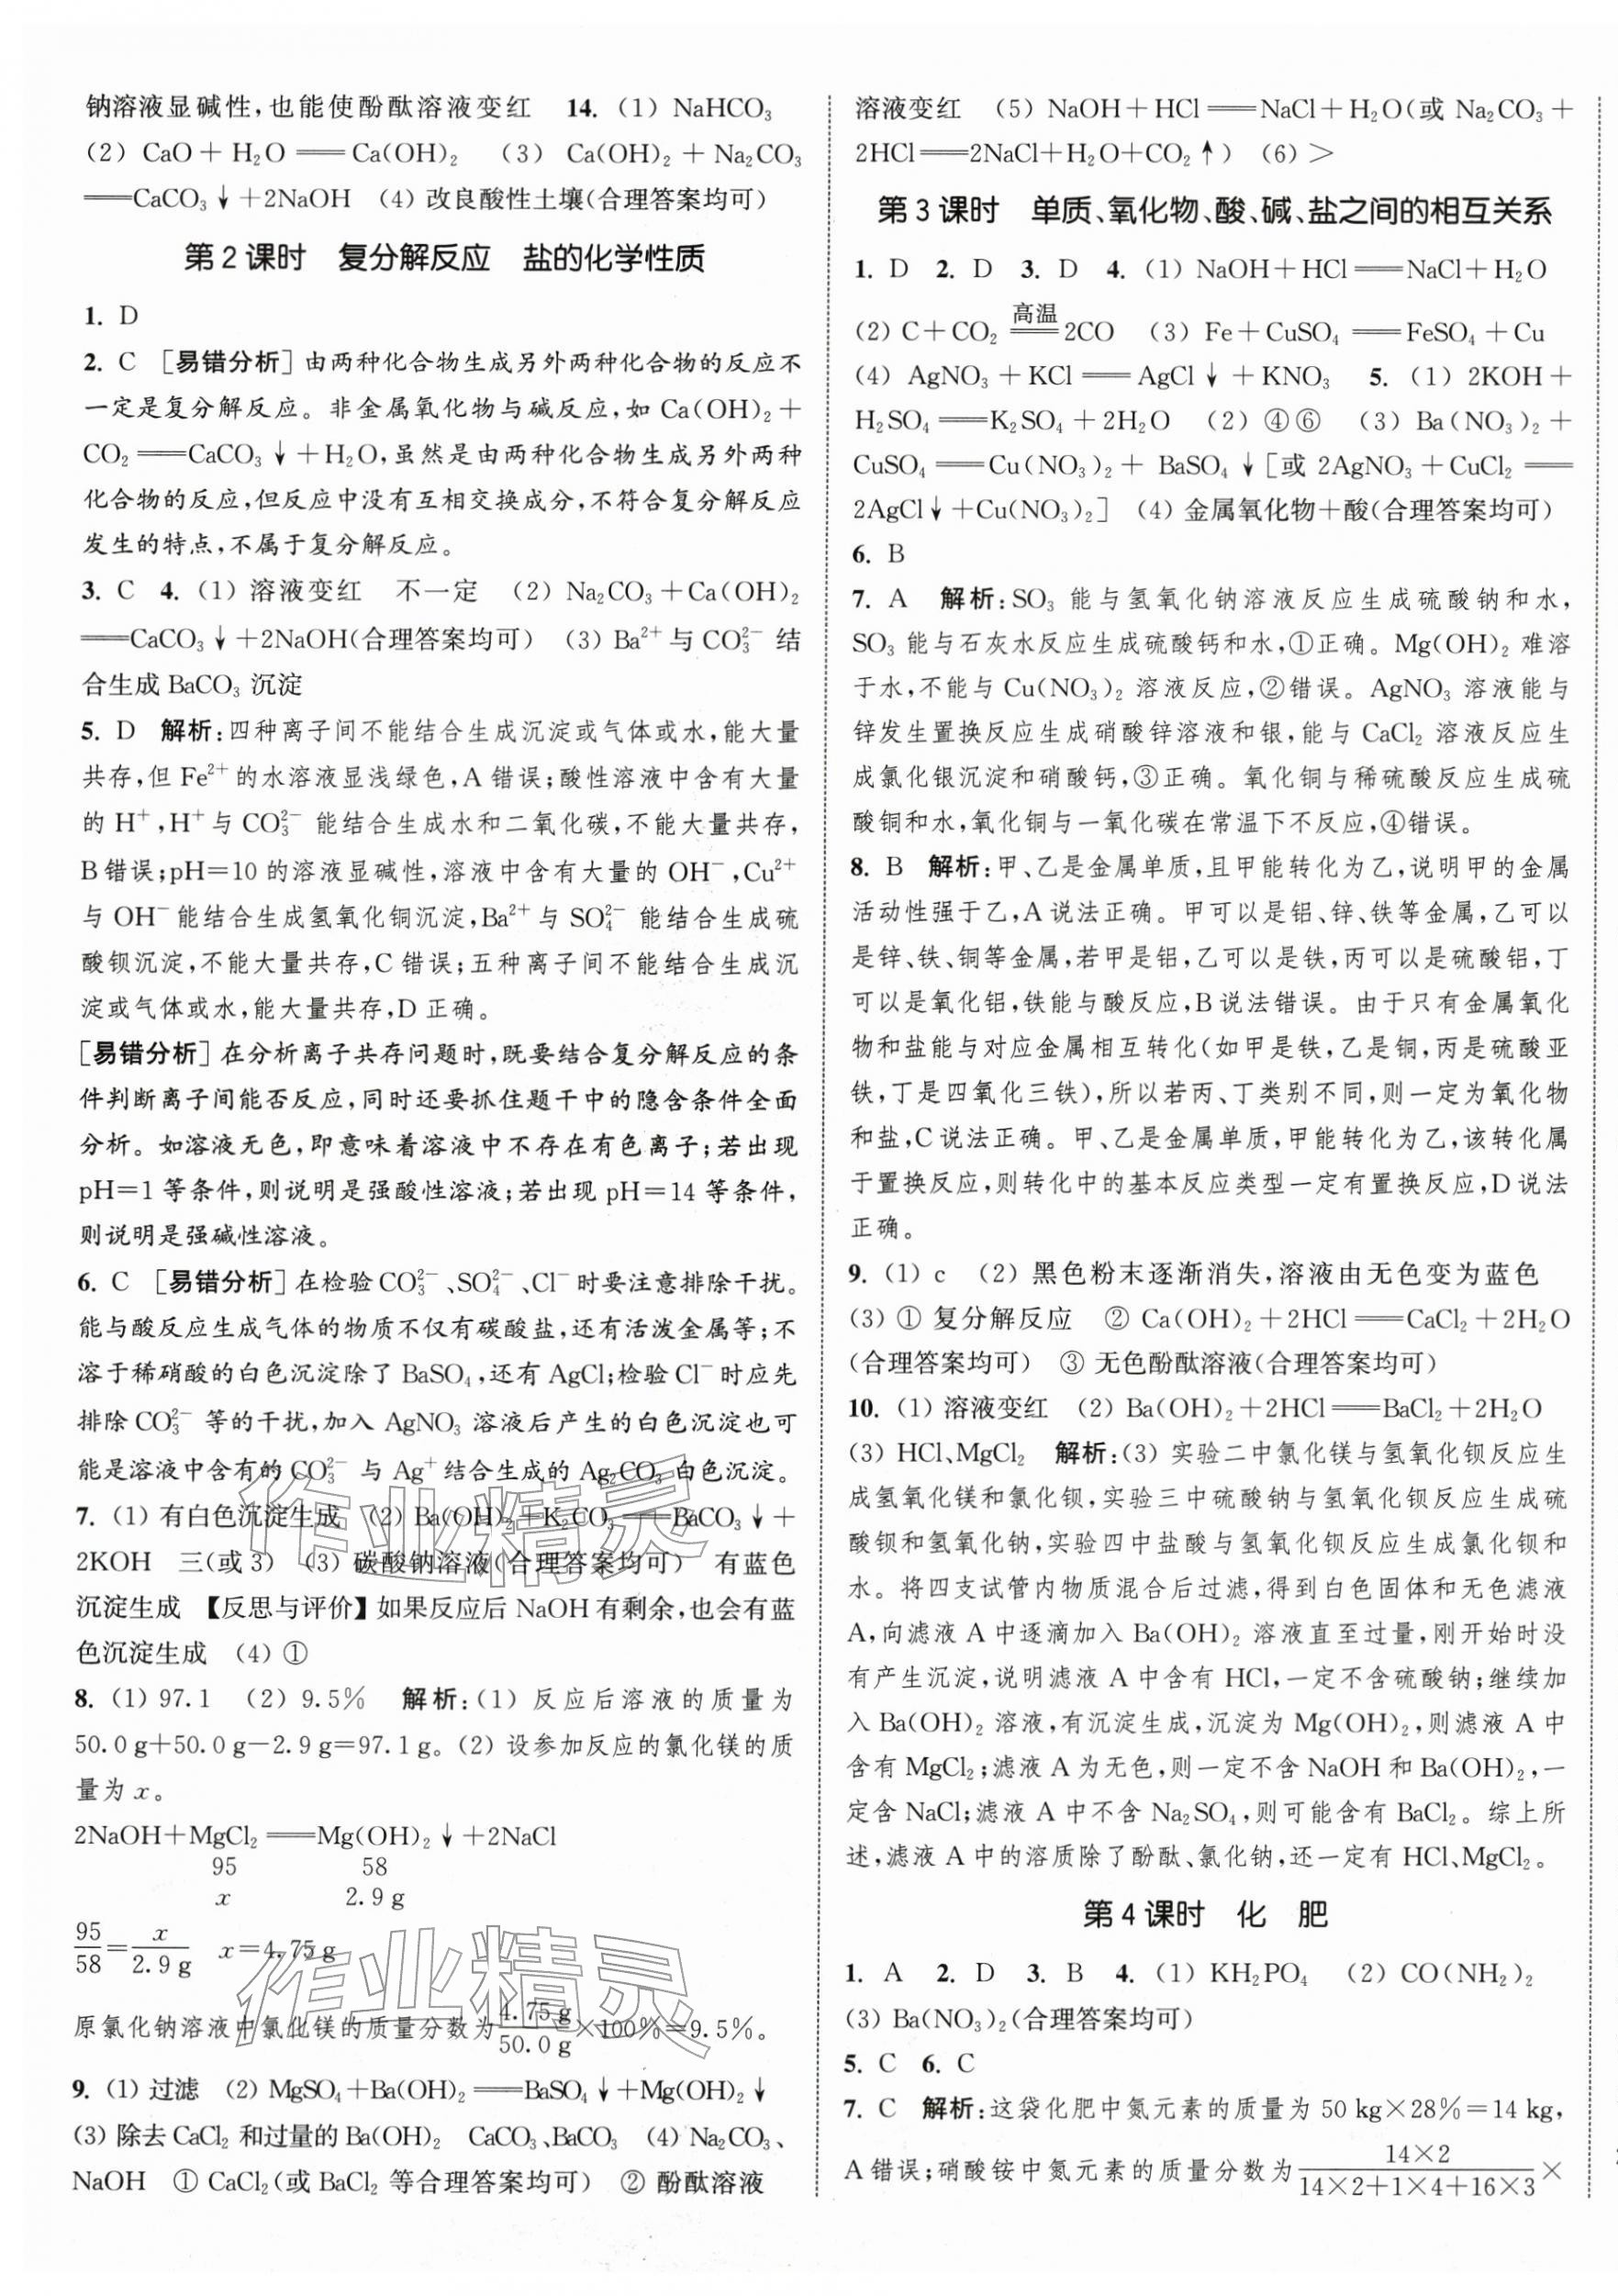 钠溶液显碱性,也能使酚酞溶液变红 14. (1) NaHCO₃
(2) CaO+H₂O══Ca(OH)₂ (3) Ca(OH)₂+Na₂CO₃
══CaCO₃↓+2NaOH (4) 改良酸性土壤(合理答案均可)
第2课时 复分解反应 盐的化学性质
1. D
2. C [易错分析]由两种化合物生成另外两种化合物的反应不
一定是复分解反应。非金属氧化物与碱反应,如Ca(OH)₂+
CO₂══CaCO₃↓+H₂O,虽然是由两种化合物生成另外两种
化合物的反应,但反应中没有互相交换成分,不符合复分解反应
发生的特点,不属于复分解反应。
3. C 4. (1) 溶液变红 不一定 (2) Na₂CO₃+Ca(OH)₂
══CaCO₃↓+2NaOH(合理答案均可) (3) Ba²⁺与CO₃²⁻结
合生成BaCO₃沉淀
5. D 解析:四种离子间不能结合生成沉淀或气体或水,能大量
共存,但Fe²⁺的水溶液显浅绿色,A错误;酸性溶液中含有大量
的H⁺,H⁺与CO₃²⁻能结合生成水和二氧化碳,不能大量共存,
B错误;pH=10的溶液显碱性,溶液中含有大量的OH⁻,Cu²⁺
与OH⁻能结合生成氢氧化铜沉淀,Ba²⁺与SO₄²⁻能结合生成硫
酸钡沉淀,不能大量共存,C错误;五种离子间不能结合生成沉
淀或气体或水,能大量共存,D正确。
[易错分析]在分析离子共存问题时,既要结合复分解反应的条
件判断离子间能否反应,同时还要抓住题干中的隐含条件全面
分析。如溶液无色,即意味着溶液中不存在有色离子;若出现
pH=1等条件,则说明是强酸性溶液;若出现pH=14等条件,
则说明是强碱性溶液。
6. C [易错分析]在检验CO₃²⁻、SO₄²⁻、Cl⁻时要注意排除干扰。
能与酸反应生成气体的物质不仅有碳酸盐,还有活泼金属等;不
溶于稀硝酸的白色沉淀除了BaSO₄,还有AgCl;检验Cl⁻时应先
排除CO₃²⁻等的干扰,加入AgNO₃溶液后产生的白色沉淀也可
能是溶液中含有的CO₃²⁻与Ag⁺结合生成的Ag₂CO₃白色沉淀。
7. (1) 有白色沉淀生成 (2) Ba(OH)₂+K₂CO₃══BaCO₃↓+
2KOH 三(或3) (3) 碳酸钠溶液(合理答案均可) 有蓝色
沉淀生成 【反思与评价】如果反应后NaOH有剩余,也会有蓝
色沉淀生成 (4) ①
8. (1) 97.1 (2) 9.5% 解析:(1) 反应后溶液的质量为
50.0 g+50.0 g−2.9 g=97.1 g。(2) 设参加反应的氯化镁的质
量为x。
2NaOH+MgCl₂══Mg(OH)₂↓+2NaCl
95 58
x 2.9 g
95/58=x/2.9 g x=4.75 g
原氯化钠溶液中氯化镁的质量分数为4.75 g/50.0 g×100%=9.5%。
9. (1) 过滤 (2) MgSO₄+Ba(OH)₂══BaSO₄↓+Mg(OH)₂↓
(3) 除去CaCl₂和过量的Ba(OH)₂ CaCO₃、BaCO₃ (4) Na₂CO₃、
NaOH ① CaCl₂(或BaCl₂等合理答案均可) ② 酚酞溶液
溶液变红 (5) NaOH+HCl══NaCl+H₂O(或Na₂CO₃+
2HCl══2NaCl+H₂O+CO₂↑) (6) >
第3课时 单质、氧化物、酸、碱、盐之间的相互关系
1. D 2. D 3. D 4. (1) NaOH+HCl══NaCl+H₂O
(2) C+CO₂ 高温══ 2CO (3) Fe+CuSO₄══FeSO₄+Cu
(4) AgNO₃+KCl══AgCl↓+KNO₃ 5. (1) 2KOH+
H₂SO₄══K₂SO₄+2H₂O (2) ④⑥ (3) Ba(NO₃)₂+
CuSO₄══Cu(NO₃)₂+BaSO₄↓[或2AgNO₃+CuCl₂══
2AgCl↓+Cu(NO₃)₂] (4) 金属氧化物+酸(合理答案均可)
6. B
7. A 解析:SO₃能与氢氧化钠溶液反应生成硫酸钠和水,
SO₃能与石灰水反应生成硫酸钙和水,①正确。Mg(OH)₂难溶
于水,不能与Cu(NO₃)₂溶液反应,②错误。AgNO₃溶液能与
锌发生置换反应生成硝酸锌溶液和银,能与CaCl₂溶液反应生
成氯化银沉淀和硝酸钙,③正确。氧化铜与稀硫酸反应生成硫
酸铜和水,氧化铜与一氧化碳在常温下不反应,④错误。
8. B 解析:甲、乙是金属单质,且甲能转化为乙,说明甲的金属
活动性强于乙,A说法正确。甲可以是铝、锌、铁等金属,乙可以
是锌、铁、铜等金属,若甲是铝,乙可以是铁,丙可以是硫酸铝,丁
可以是氧化铝,铁能与酸反应,B说法错误。由于只有金属氧化
物和盐能与对应金属相互转化(如甲是铁,乙是铜,丙是硫酸亚
铁,丁是四氧化三铁),所以若丙、丁类别不同,则一定为氧化物
和盐,C说法正确。甲、乙是金属单质,甲能转化为乙,该转化属
于置换反应,则转化中的基本反应类型一定有置换反应,D说法
正确。
9. (1) c (2) 黑色粉末逐渐消失,溶液由无色变为蓝色
(3) ① 复分解反应 ② Ca(OH)₂+2HCl══CaCl₂+2H₂O
(合理答案均可) ③ 无色酚酞溶液(合理答案均可)
10. (1) 溶液变红 (2) Ba(OH)₂+2HCl══BaCl₂+2H₂O
(3) HCl、MgCl₂ 解析:(3) 实验二中氯化镁与氢氧化钡反应生
成氢氧化镁和氯化钡,实验三中硫酸钠与氢氧化钡反应生成硫
酸钡和氢氧化钠,实验四中盐酸与氢氧化钡反应生成氯化钡和
水。将四支试管内物质混合后过滤,得到白色固体和无色滤液
A,向滤液A中逐滴加入Ba(OH)₂溶液直至过量,刚开始时没
有产生沉淀,说明滤液A中含有HCl,一定不含硫酸钠;继续加
入Ba(OH)₂溶液,有沉淀生成,沉淀为Mg(OH)₂,则滤液A中
含有MgCl₂;滤液A为无色,则一定不含NaOH和Ba(OH)₂,一
定含NaCl;滤液A中不含Na₂SO₄,则可能含有BaCl₂。综上所
述,滤液A中的溶质除了酚酞、氯化钠,还一定有HCl、MgCl₂。
第4课时 化 肥
1. A 2. D 3. B 4. (1) KH₂PO₄ (2) CO(NH₂)₂
(3) Ba(NO₃)₂(合理答案均可)
5. C 6. C
7. C 解析:这袋化肥中氮元素的质量为50 kg×28%=14 kg,
A错误;硝酸铵中氮元素的质量分数为14×2/14×2+1×4+16×3×
作业精灵
作业精灵